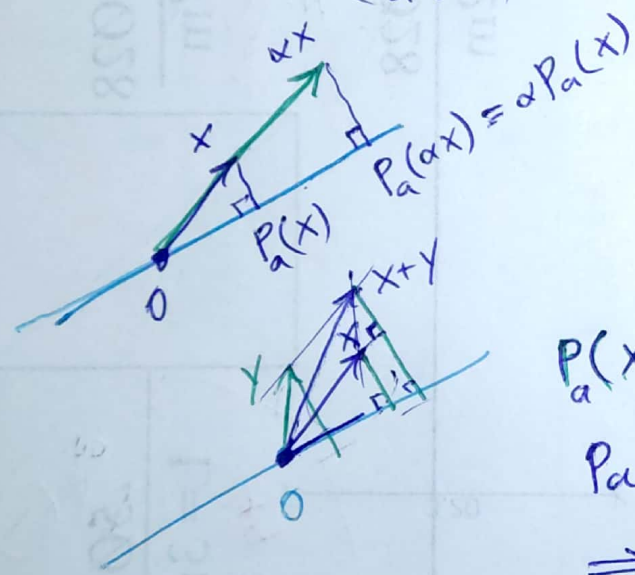 αx
x
P_a(αx) = αP_a(x)
P_a(x)
0
x+y
x
y
P_a(x
P_a
0
⇒